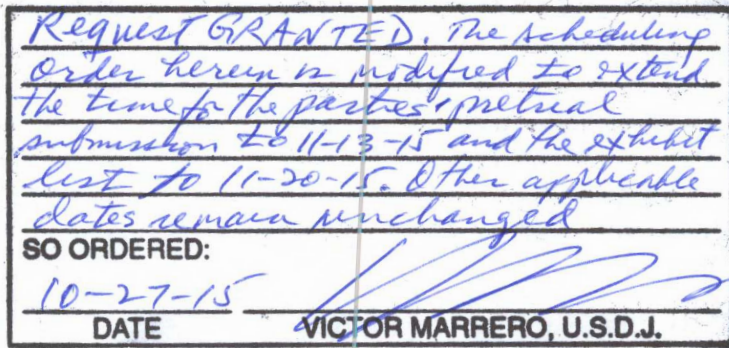 Request GRANTED. The scheduling
order herein is modified to extend
the time for the parties' pretrial
submission to 11-13-15 and the exhibit
list to 11-20-15. Other applicable
dates remain unchanged
SO ORDERED:
10-27-15
DATE VICTOR MARRERO, U.S.D.J.